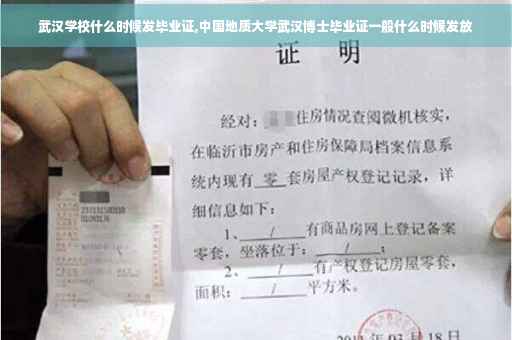 武汉学校什么时候发毕业证,中国地质大学武汉博士毕业证一般什么时候发放
证 明
经对: 住房情况查阅微机核实,
在临沂市房产和住房保障局档案信息系
统内现有 零 套房屋产权登记记录, 详
细信息如下:
1、 / 有商品房网上登记备案
零套, 坐落位于: / ;
2、 / 有产权登记房屋零套,
面积: / 平方米。
03 月 18 日